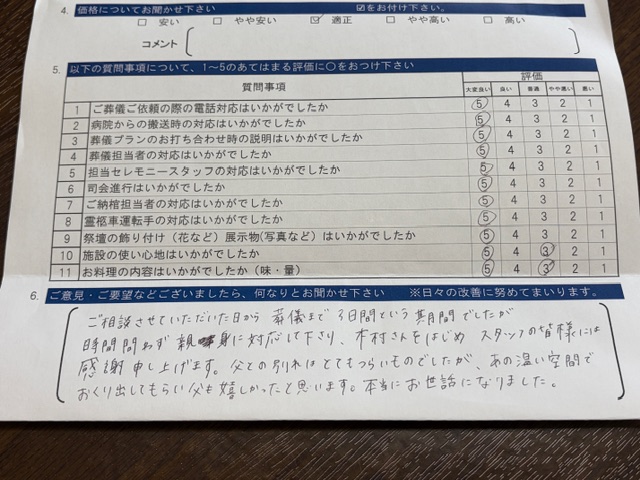 4. 価格についてお聞かせ下さい ☑をお付け下さい。
☐ 安い ☐ やや安い ☑ 適正 ☐ やや高い ☐ 高い
コメント
5. 以下の質問事項について、1～5のあてはまる評価に〇をおつけ下さい
質問事項 評価
大変良い 良い 普通 やや悪い 悪い
1 ご葬儀ご依頼の際の電話対応はいかがでしたか 5 4 3 2 1
2 病院からの搬送時の対応はいかがでしたか 5 4 3 2 1
3 葬儀プランのお打ち合わせ時の説明はいかがでしたか 5 4 3 2 1
4 葬儀担当者の対応はいかがでしたか 5 4 3 2 1
5 担当セレモニースタッフの対応はいかがでしたか 5 4 3 2 1
6 司会進行はいかがでしたか 5 4 3 2 1
7 ご納棺担当者の対応はいかがでしたか 5 4 3 2 1
8 霊柩車運転手の対応はいかがでしたか 5 4 3 2 1
9 祭壇の飾り付け（花など）展示物(写真など）はいかがでしたか 5 4 3 2 1
10 施設の使い心地はいかがでしたか 5 4 3 2 1
11 お料理の内容はいかがでしたか（味・量） 5 4 3 2 1
6. ご意見・ご要望などございましたら、何なりとお聞かせ下さい ※日々の改善に努めてまいります。
ご相談させていただいた日から 葬儀まで 3日間という 期間でしたが
時間問わず 親身に対応して下り、木村さんをはじめ スタッフの皆様には
感謝申し上げます。父との別れはとてもつらいものでしたが、あの温い空間で
おくり出してもらい父も嬉しかったと思います。本当にお世話になりました。